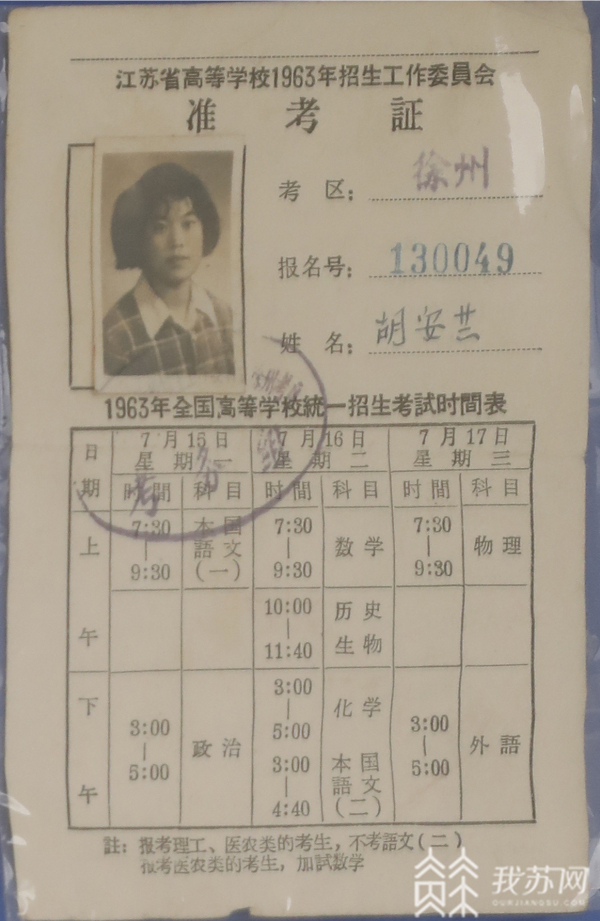 江苏省高等学校1963年招生工作委員会
准考証
考区: 徐州
报名号: 130049
姓名: 胡安
1963年全国高等学校統一招生考試时間表
日期 7月15日 星期一 7月16日 星期二 7月17日 星期三
时間 科目 时間 科目 时間 科目
上午 7:30—9:30 本国語文(一) 7:30—9:30 数学 7:30—9:30 物理
10:00—11:40 历史 生物
下午 3:00—5:00 政治 3:00—5:00 化学 3:00—5:00 外語
3:00—4:40 本国語文(二)
註: 报考理工、医农类的考生,不考語文(二)
报考医农类的考生,加試数学
我苏网
OURJIANGSU.COM